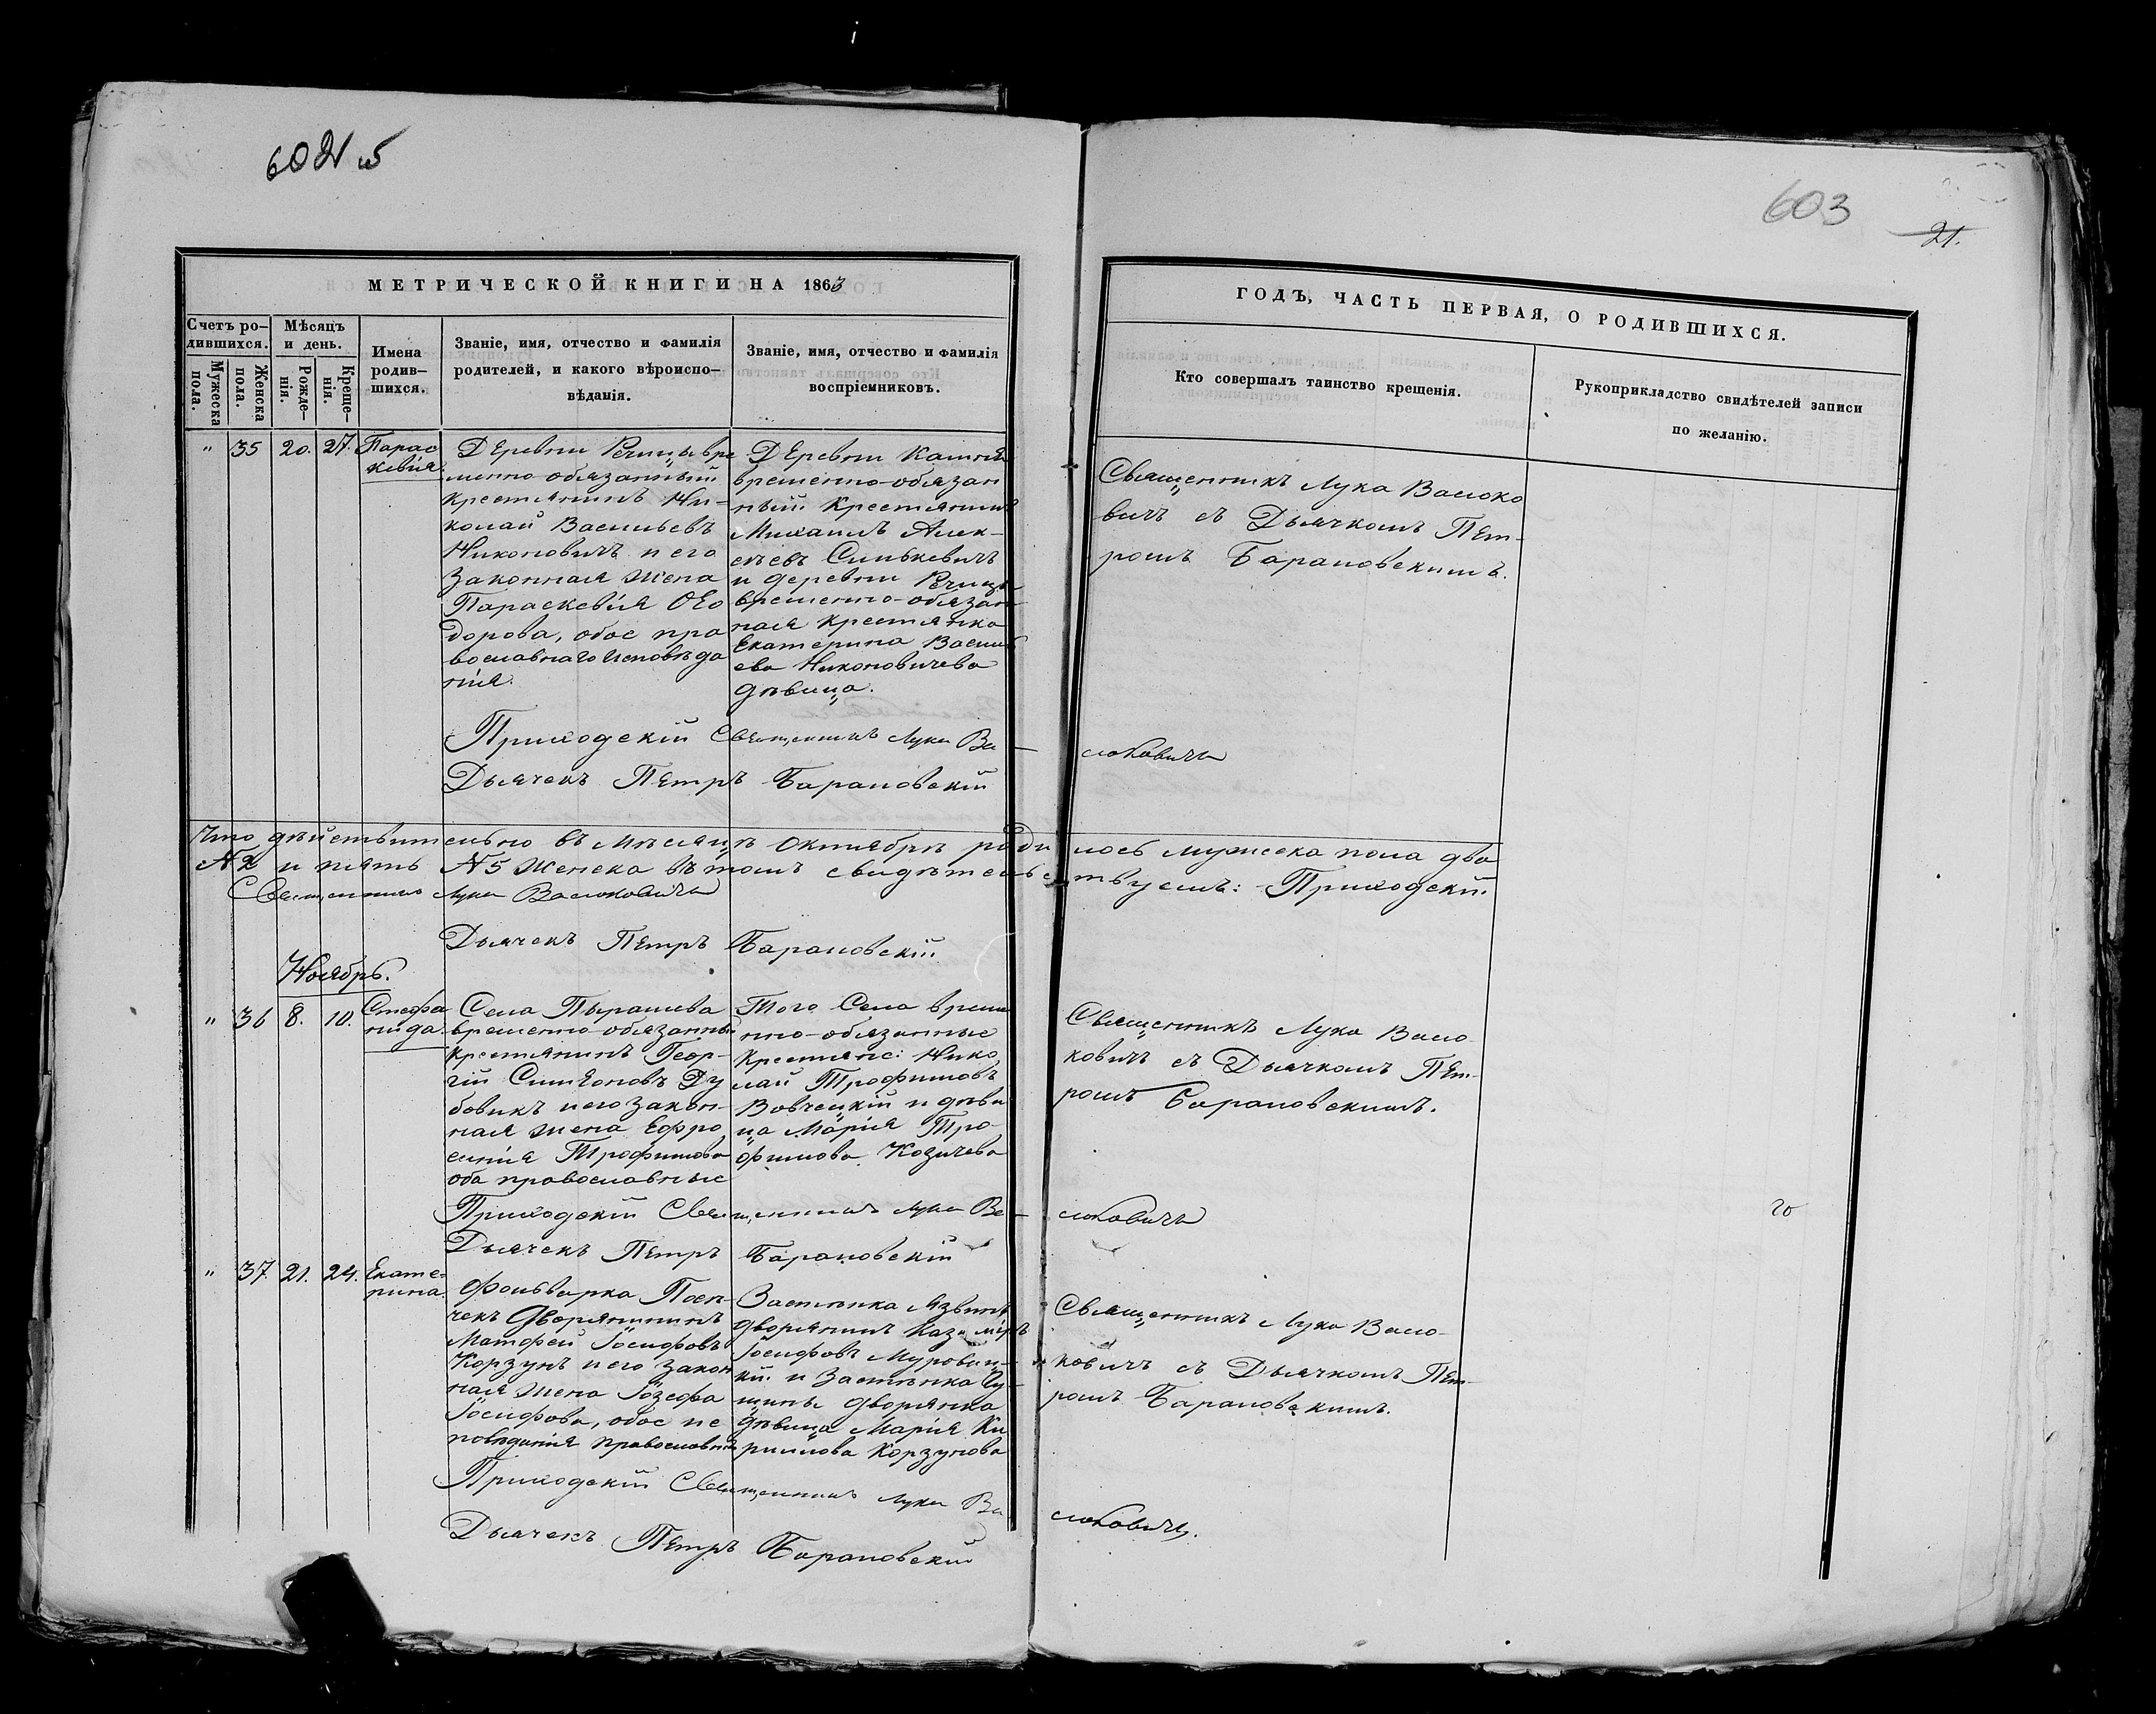 603
21.
МЕТРИЧЕСКОЙ КНИГИ НА 1863
ГОДЪ, ЧАСТЬ ПЕРВАЯ, О РОДИВШИХСЯ.
Счетъ ро-
дившихся.
Мужеска
пола.
Женска
пола.
Мѣсяцъ
и день.
Рожде-
нія.
Креще-
нія.
Имена
родив-
шихся.
Званіе, имя, отчество и фамилія
родителей, и какого вѣроиспо-
вѣданія.
Званіе, имя, отчество и фамилія
воспріемниковъ.
Кто совершалъ таинство крещенія.
Рукоприкладство свидѣтелей записи
по желанію.
" 35 20. 27.
Парас
кевія
Деревни Речицы вре
менно-обязанный
крестьянинъ Ни-
колай Васильевъ
Никоновичъ и его
законная жена
Параскевія Ѳео
дорова, обое пра
вославнаго исповѣда
нія.
Деревни
временно-обязан
ный крестьянинъ
Михаилъ Алек-
сѣевъ Синькевичъ
и деревни Речицы
временно-обязан
ная крестьянка
Екатерина Василь
ева Никоновичева
дѣвица.
Священникъ Лука Васюко
вичъ съ Дьячкомъ Пет-
ромъ Барановскимъ.
Приходскій Священникъ Лука Ва-
сюковичъ
Дьячекъ Петръ Барановскій
Что дѣйствительно въ мѣсяцѣ Октябрѣ роди лось мужеска пола два
№ 2 и пять № 5 женска въ томъ свидѣтельс твуемъ: Приходскій
Священникъ Лука Васюковичъ
Дьячекъ Петръ Барановскій
Ноябрь.
" 36 8. 10.
Стефа
нида
Села Пырашева
временно-обязанный
крестьянинъ Геор-
гій Симеоновъ Ду
бовикъ и его закон-
ная жена Ефро
синія Трофимова
оба православные
Того Села време
нно-обязанные
крестьяне: Нико
лай Трофимовъ
Вовчецкій и дѣви
ца Марія Тро-
фимова Козичева
Священникъ Лука Васю
ковичъ съ Дьячкомъ Пет-
ромъ Барановскимъ.
Приходскій Священникъ Лука Ва-
сюковичъ
Дьячекъ Петръ Барановскій
" 37. 21. 24.
Екате-
рина
Фольварка
дворянинъ
Матфей Іосифовъ
Корзунъ и его закон
ная жена Іозефа
Іосифова, обое ис
повѣданія православнія
Застѣнка
дворянинъ Казиміръ
Іосифовъ
кій и Застѣнка
дворянка
дѣвица Марія Ки
риллова Корзунова
Священникъ Лука Васю-
ковичъ съ Дьячкомъ Пет-
ромъ Барановскимъ.
Приходскій Священникъ Лука Ва
сюковичъ.
Дьячекъ Петръ Барановскій